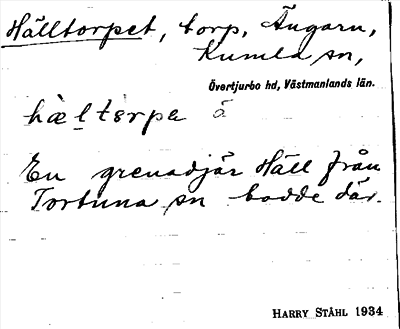 Hälltorpet, torp, Ängarn,
Kumla sn,
Övertjurbo hd, Västmanlands län.
hæltɵrpa å
En grenadjär Häll från
Tortuna sn bodde där.
HARRY STÅHL 1934